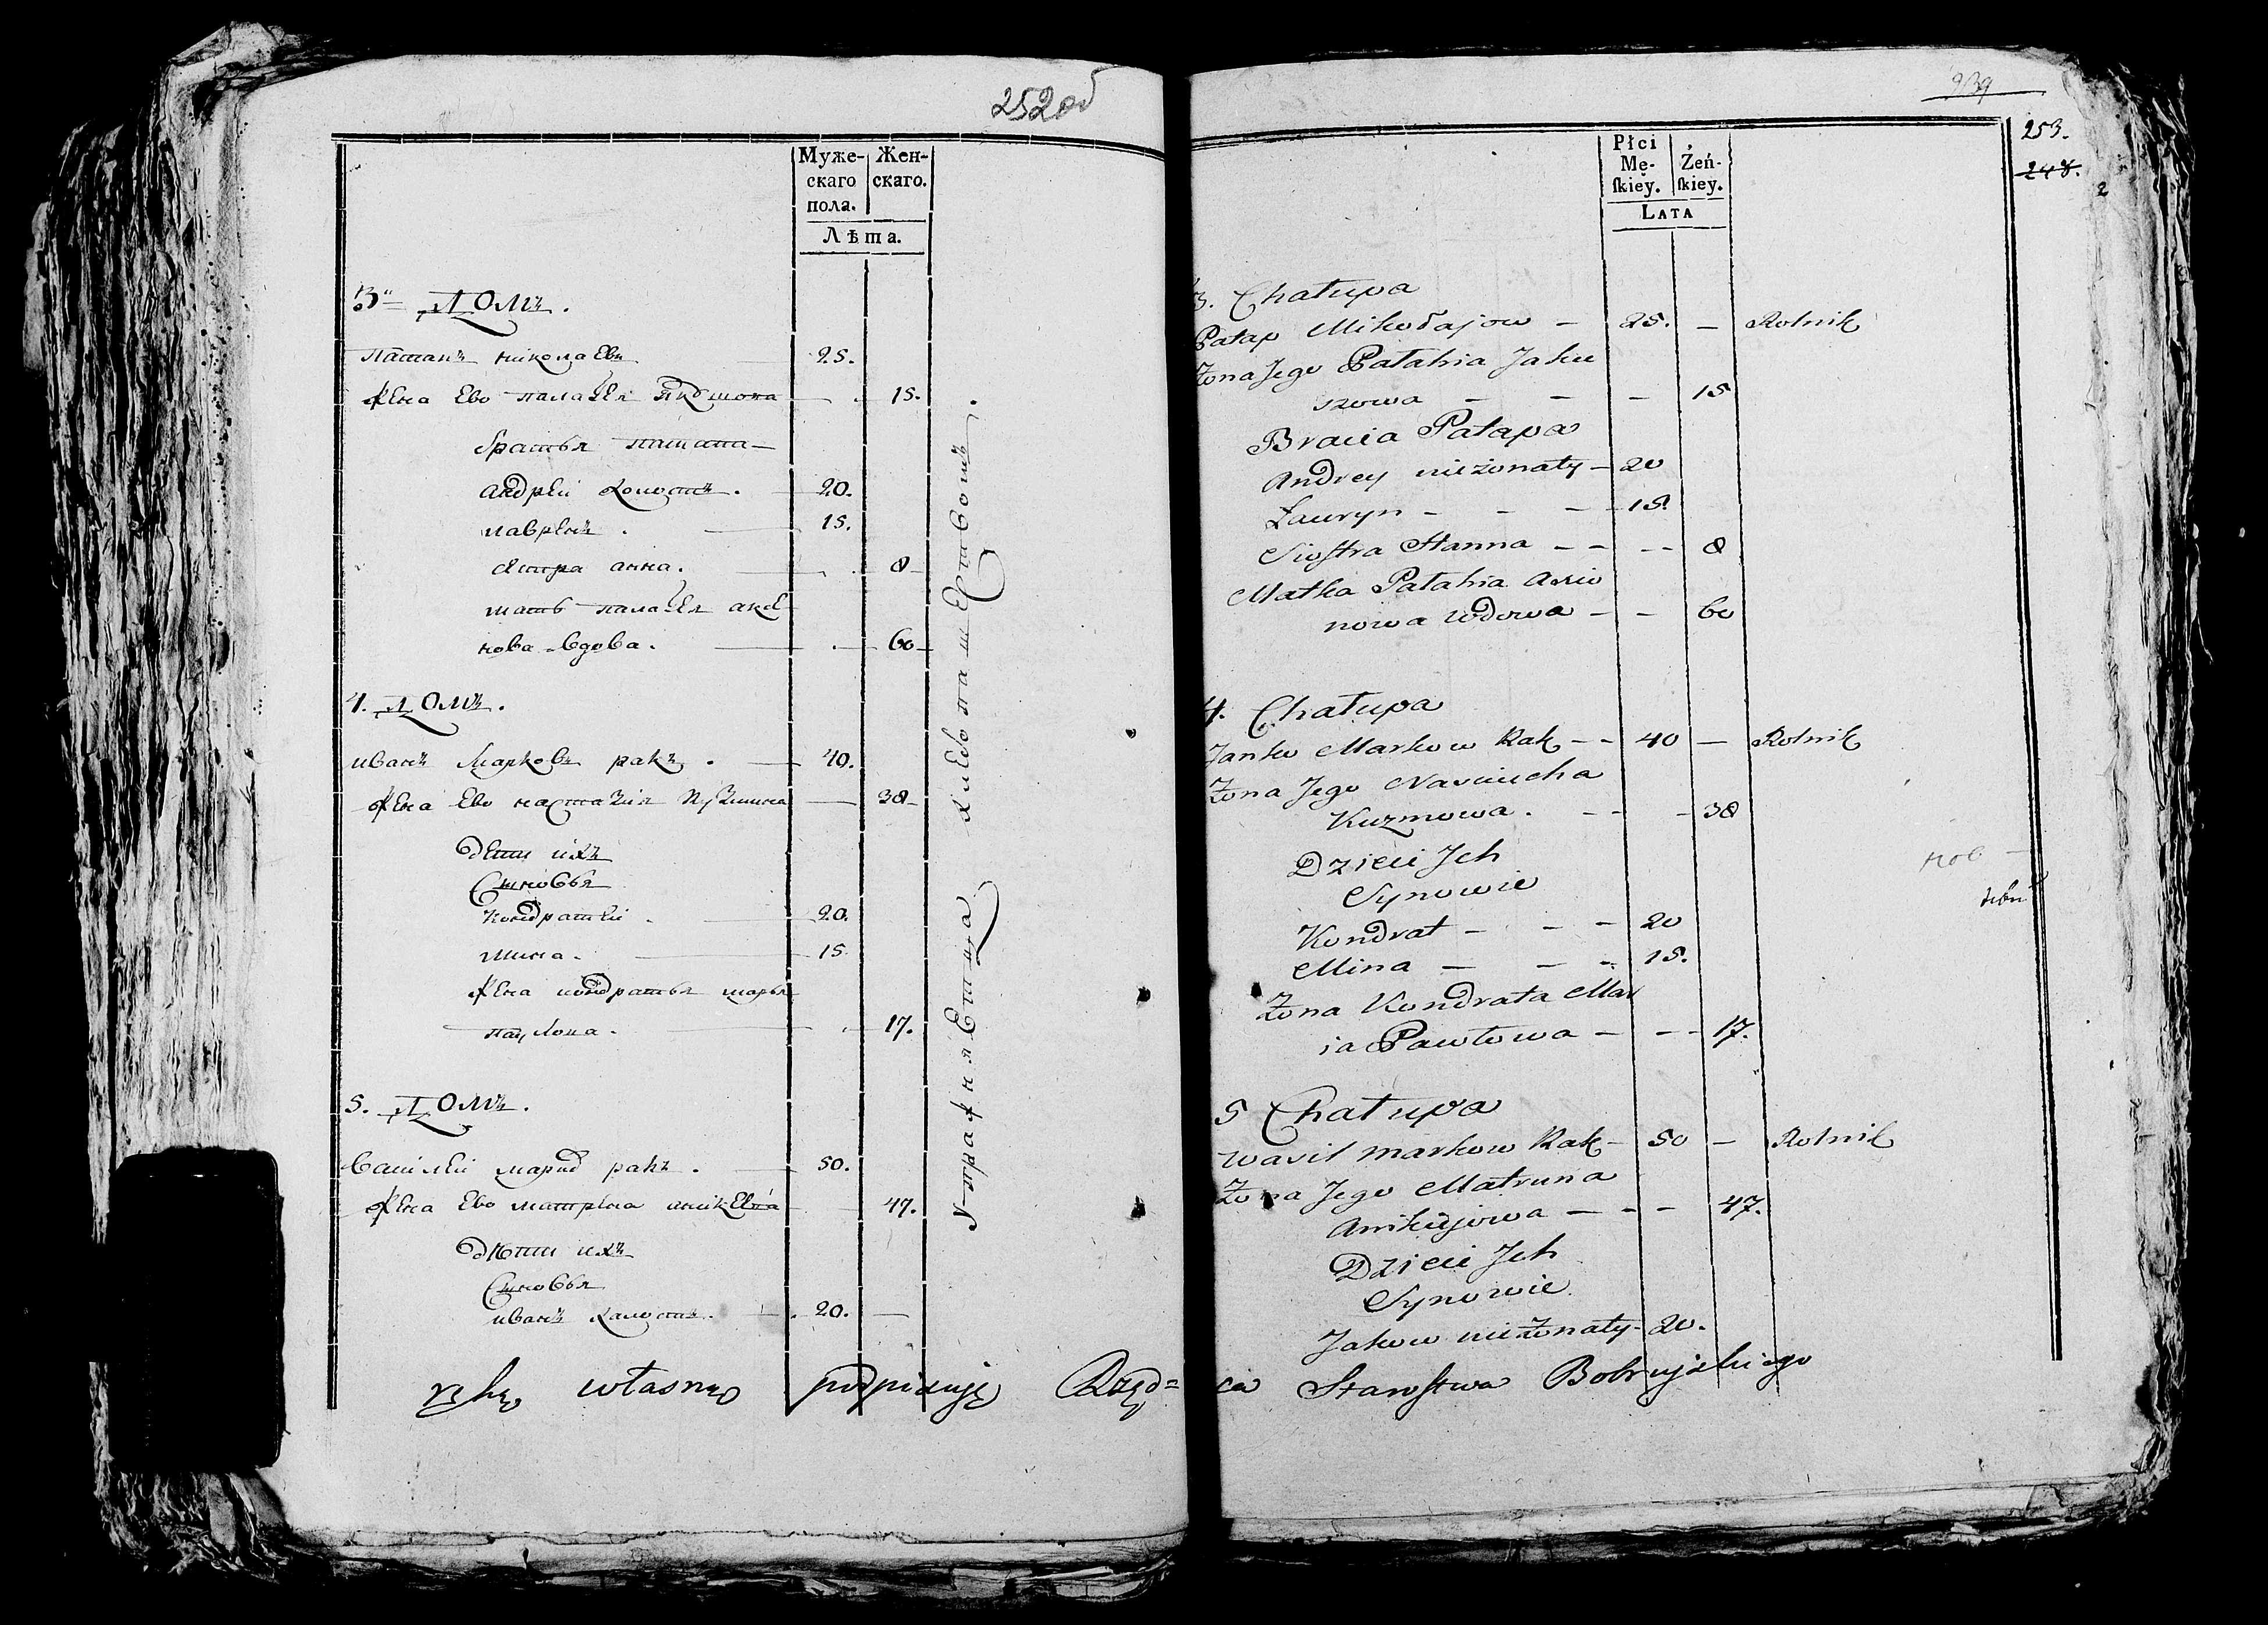 252 об
Муже-
скаго
пола.
Жен-
скаго.
Лѣта.
3. домъ.
Патапъ николаевъ 25.
жена Ево палагея 15.
братья патапа
андрей холостъ. 20.
лаврень. 15.
сестра анна. 8
мать палагея
нова вдова. 60
4. домъ.
иванъ Марковъ ракъ. 40.
жена Ево настазия кузмина 38
дети ихъ
Сыновья
кондратей 20.
мина. 15
жена кондратья марья
павлова. 17.
5. домъ.
василей ракъ. 50.
жена Ево матрена 47.
дети ихъ
Сыновья
иванъ холостъ. 20.
упражняетца хлебопашествомъ
939
253.
248.
2
Płci
Mę-
ſkiey.
Żeń-
ſkiey.
LATA
3. Chałupa
Patap Mikołajow – 25. – Rolnik
Żona Jego Pałahia Jaku
szowa – – – 15
Bracia Patapa
Andrey nieżonaty – 20
Ławryn – – – 15
Siostra Hanna – – – – 8
Matka Pałahia Axio
nowa wdowa – – 60
4. Chałupa
Janko Markow Rak – – 40 – Rolnik
Żona Jego Nasciucha
Kuzmowa. – – – 38
Dzieci Jch
Synowie
Kondrat – – – 20
Mina – – – 15.
Żona Kondrata Mar
ia Pawłowa – – – 17.
5 Chałupa
Wasil Markow Rak – 50 – Rolnik
Żona Jego Matruna
Anikiejowa – – – 47.
Dzieci Jch
Synowie
Jakow nieżonaty – 20.
ręką własną podpisuję Rząd=ca Starostwa Bobruyskiego